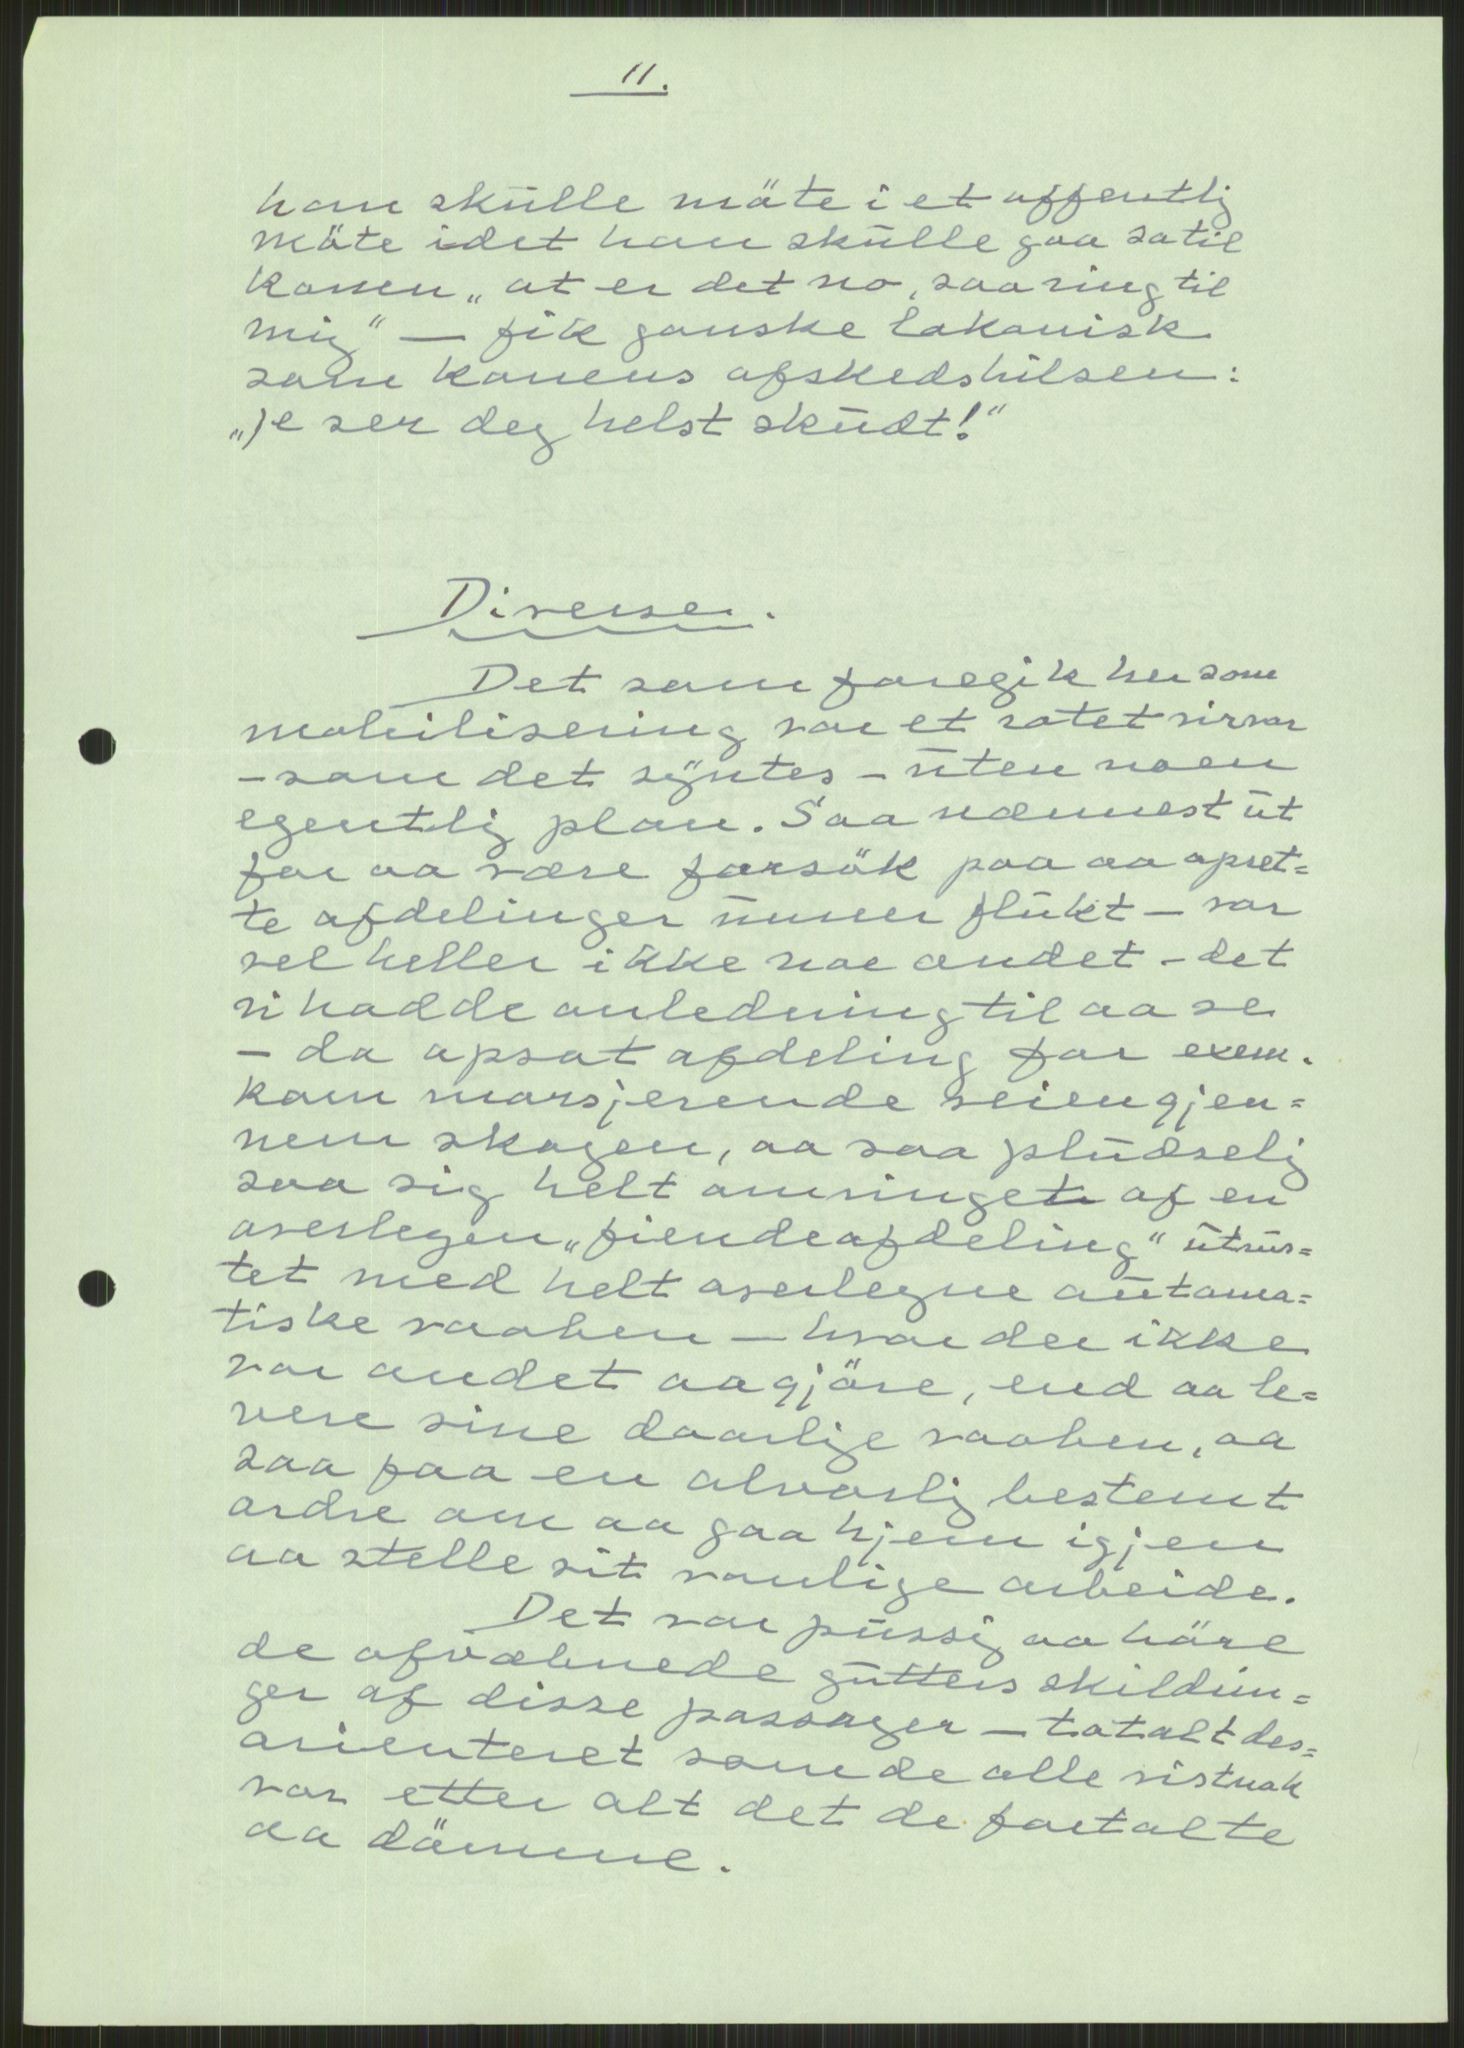 11.
han skulle möte i et offentlig
möte idet han skulle gaa sa til
konen „at er det no, saa ring til
mig“ — fik ganske lakonisk
som konens afskedshilsen:
„Je ser deg helst skudt!“
Diverse.
Det som foregik her som
mobilisering var et rotet virvar
– som det syntes – uten noen
egentlig plan. Saa nærmest ut
for aa være forsök paa aa opret=
te afdelinger under flukt – var
vel heller ikke noe andet – det
vi hadde anledning til aa se
– da opsat afdeling for exem.
kom marsjerende veien gjen=
nem skogen, aa saa pludselig
saa sig helt omringet af en
overlegen „fiendeafdeling“ utrus=
tet med helt overlegne automa=
tiske vaaben – hvor der ikke
var andet aa gjöre, end aa le=
vere sine daarlige vaaben, aa
saa faa en alvorlig bestemt
ordre om aa gaa hjem igjen
aa stelle sit vanlige arbeide.
Det var pussig aa höre
de afvæbnede gutters skildrin=
ger af disse passager – totalt des=
orienteret som de alle vistnok
var etter alt det de fortalte
aa dömme.